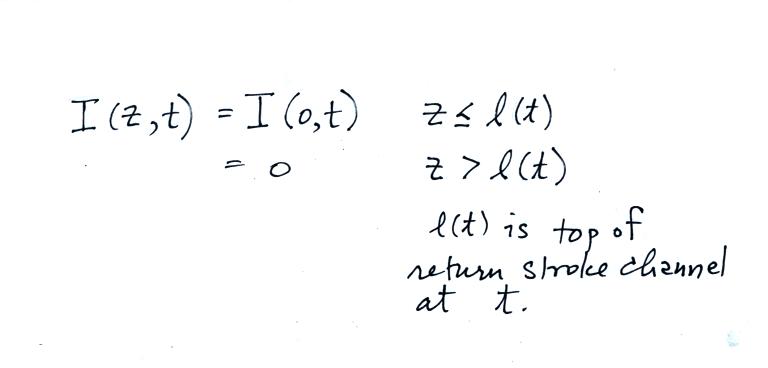 I(z,t) = I(0,t) z ≤ l(t)
= 0 z > l(t)
l(t) is top of
return stroke channel
at t.